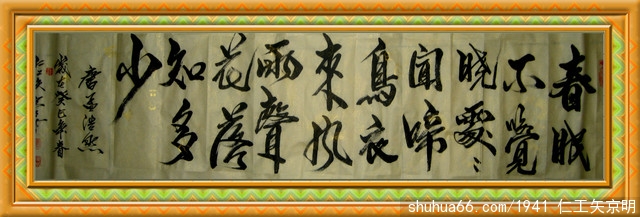 春眠
不覺
晓處〻
聞啼
鳥夜
來風
雨聲
花落
知多
少
唐孟浩然
歲在癸巳年春
shuhua66.com/1941 仁工矢京明